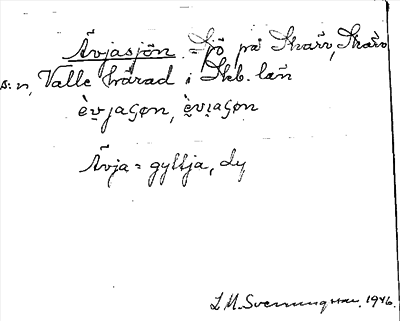 Ävjasjön = Sjö på Skarv, Skarv
s:n, Valle härad i Skb. län
èvjaςøn, èvıaςøn
Ävja = gyttja, dy
L. M. Svenungsson, 1946.